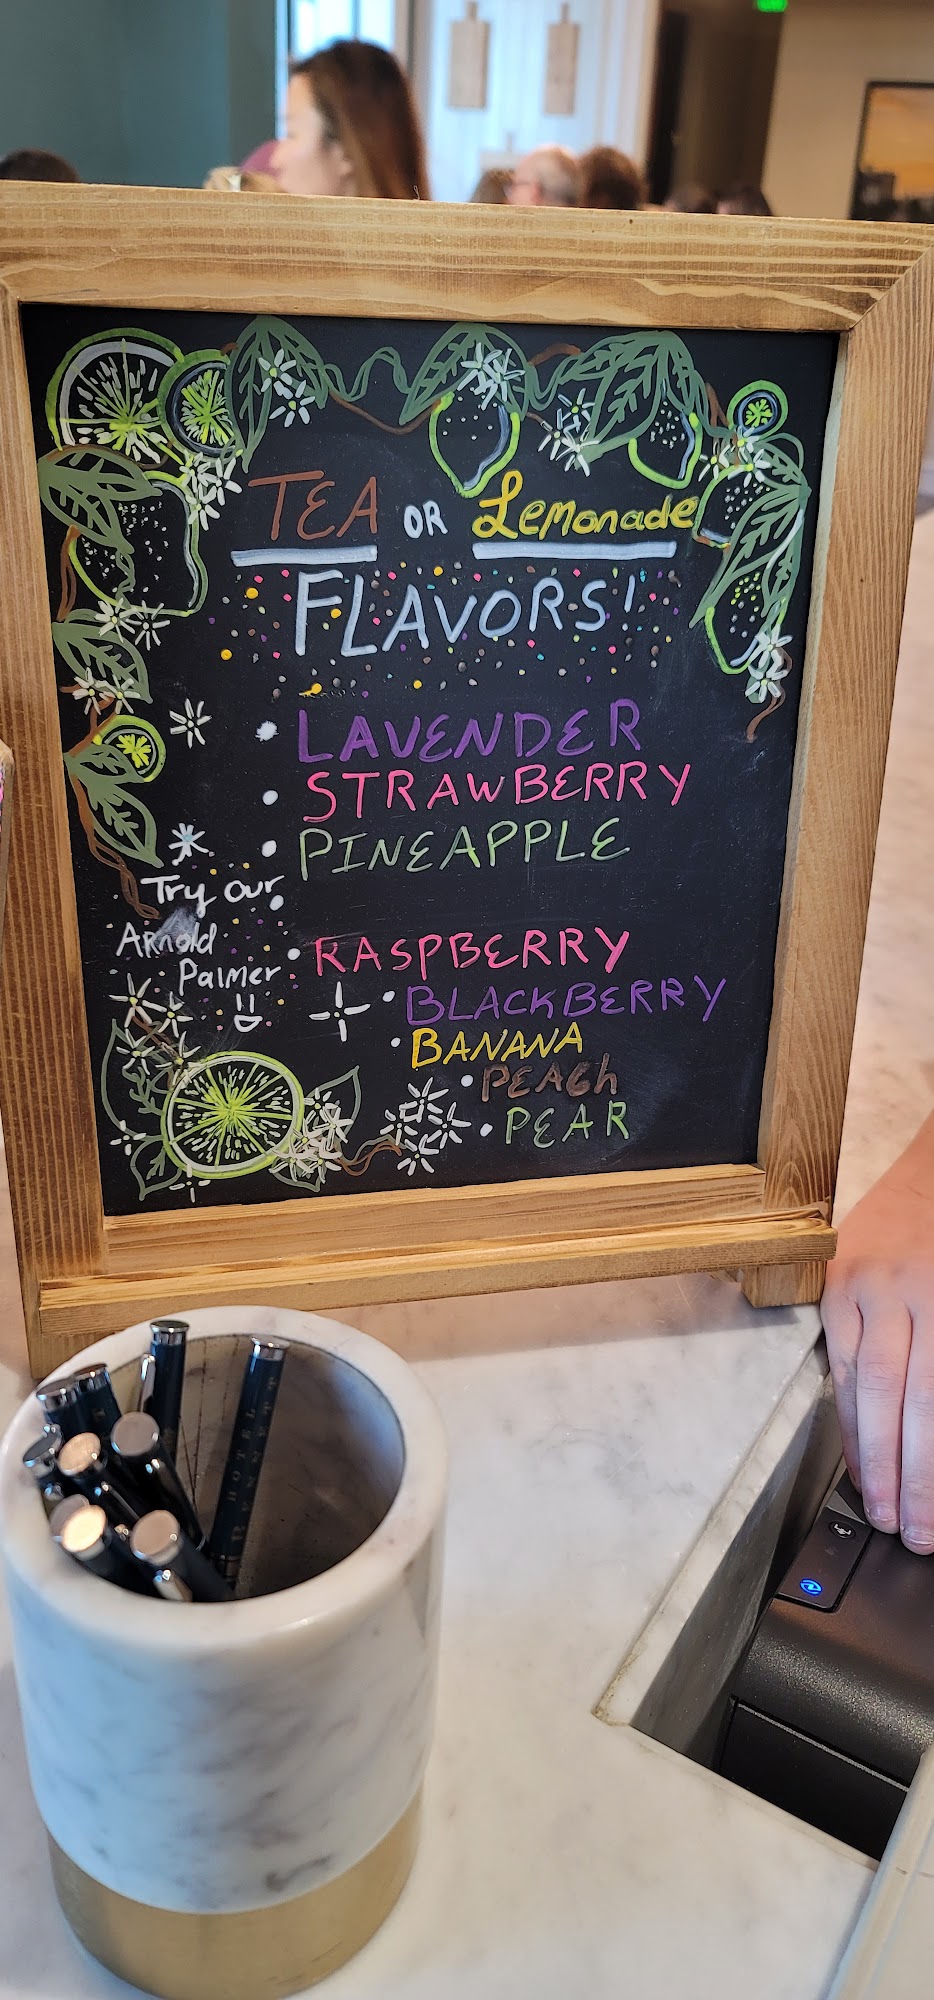 TEA OR Lemonade
FLAVORS!
LAVENDER
STRAWBERRY
PINEAPPLE
Try our
Arnold
Palmer
RASPBERRY
BLACKBERRY
BANANA
PEACh
PEAR